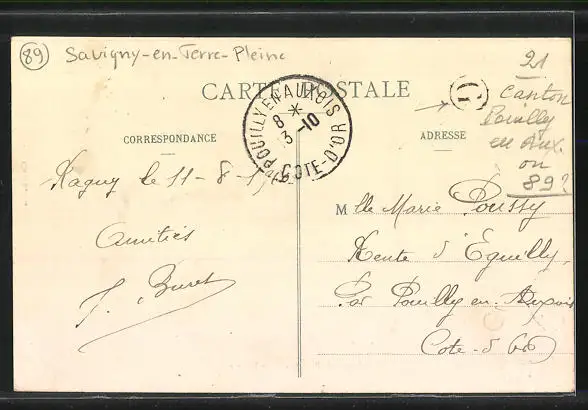 89 Savigny-en-Terre-Pleine
21
CARTE POSTALE
Canton
Pouilly
en Aux.
ou
89?
POUILLY EN AUXOIS
8 *
3-10
COTE-D'OR
CORRESPONDANCE
ADRESSE
le 11-8-
Amitiés
J. Buret
Mlle Marie Poussy
d'Eguilly
Par Pouilly en Auxois
Cote-d'Or